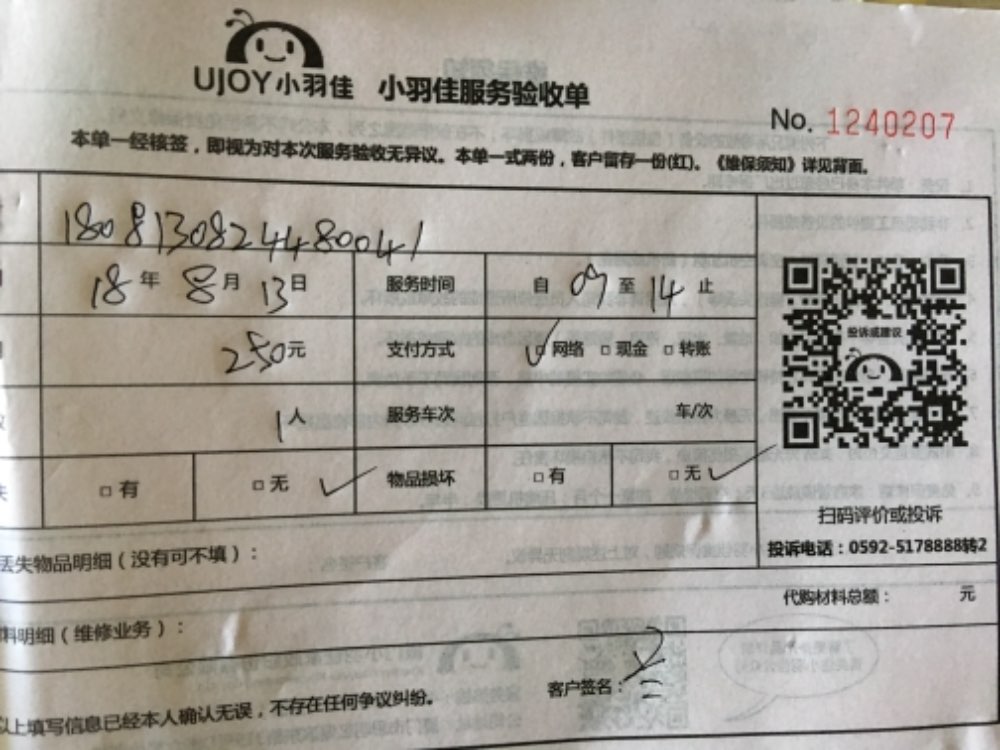 UJOY小羽佳 小羽佳服务验收单
No. 1240207
本单一经核签，即视为对本次服务验收无异议。本单一式两份，客户留存一份(红)。《维保须知》详见背面。
18081308244480041
18年 8月 13日 服务时间 自 09 至 14 止
250元 支付方式 ☑网络 □现金 □转账
投诉或建议
1人 服务车次 车/次
□有 □无 ✓ 物品损坏 □有 □无 ✓
扫码评价或投诉
投诉电话：0592-5178888转2
丢失物品明细（没有可不填）：
代购材料总额： 元
料明细（维修业务）：
客户签名：
以上填写信息已经本人确认无误，不存在任何争议纠纷。